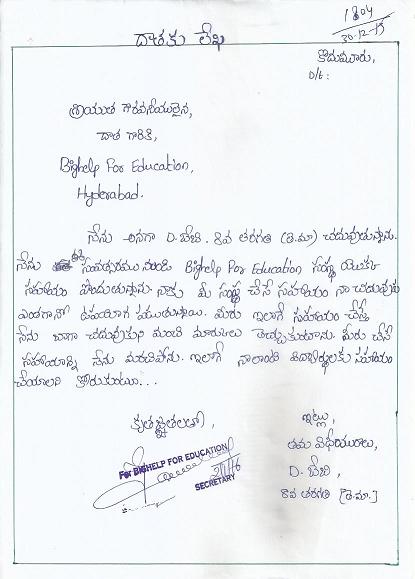 1804
30-12-15
దాతకు లేఖ
కొదుమూరు,
D/t:
శ్రీయుత గౌరవనీయులైన,
దాత గారికి,
Bighelp For Education,
Hyderabad.
నేను అనగా D. బేబి. 8వ తరగతి (తె.మా) చదువుతున్నాను.
నేను 7వ సంవత్సరము నుండి Bighelp For Education సంస్థ యొక్క
సహాయం పొందుతున్నాను. నాకు మీ సంస్థ చేసే సహాయం నా చదువుకు
ఎంతగానో ఉపయోగ పడుతున్నాయి. మీరు ఇలాగే సహాయం చేస్తే
నేను బాగా చదువుకుని మంచి మార్కులు తెచ్చుకుంటాను. మీరు చేసే
సహాయాన్ని నేను మరచిపోను. ఇలాగే నాలాంటి విద్యార్థులకు సహాయం
చేయాలని కోరుకుంటూ...
కృతజ్ఞతలతో,
ఇట్లు,
తమ విధేయురాలు,
D. బేబి,
8వ తరగతి [తె.మా.]
For BIGHELP FOR EDUCATION
SECRETARY